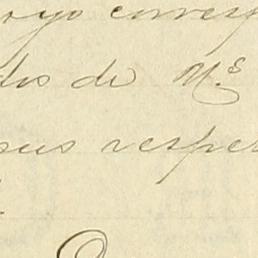 oyo corresp
dos de M.s
sus respe